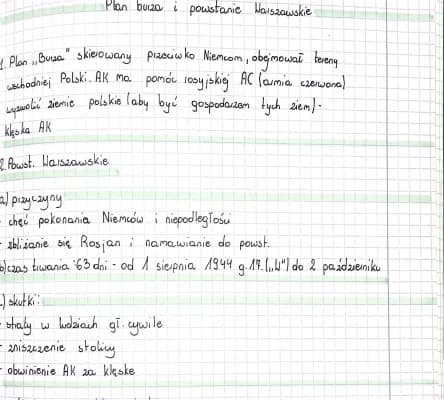 Plan burza i powstanie Warszawskie
1. Plan „Burza" skierowany przeciwko Niemcom, obejmował tereny
wschodniej Polski. AK ma pomóc rosyjskiej AC (armia czerwona)
wyzwolić ziemie polskie (aby być gospodarzem tych ziem).
klęska AK
2. Powst. Warszawskie
a) przyczyny
- chęć pokonania Niemców i niepodległości
- zbliżanie się Rosjan i namawianie do powst.
b) czas trwania 63 dni - od 1 sierpnia 1944 g. 17. („W") do 2 październiku
c) skutki:
- straty w ludziach gł. cywile
- zniszczenie stolicy
- obwinienie AK za klęskę